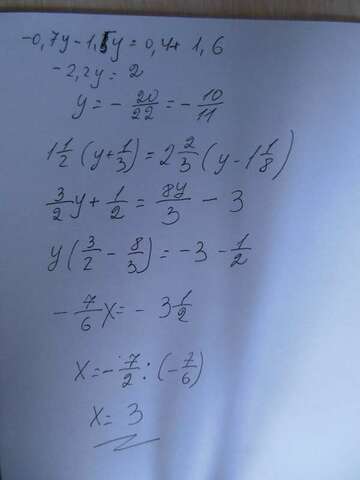 -0,7y-1,5y=0,4+1,6
-2,2y=2
y=-20/22=-10/11
1 1/2(y+1/3)=2 2/3(y-1 1/8)
3/2y+1/2=8y/3-3
y(3/2-8/3)=-3-1/2
-7/6x=-3 1/2
x=-7/2:(-7/6)
x=3